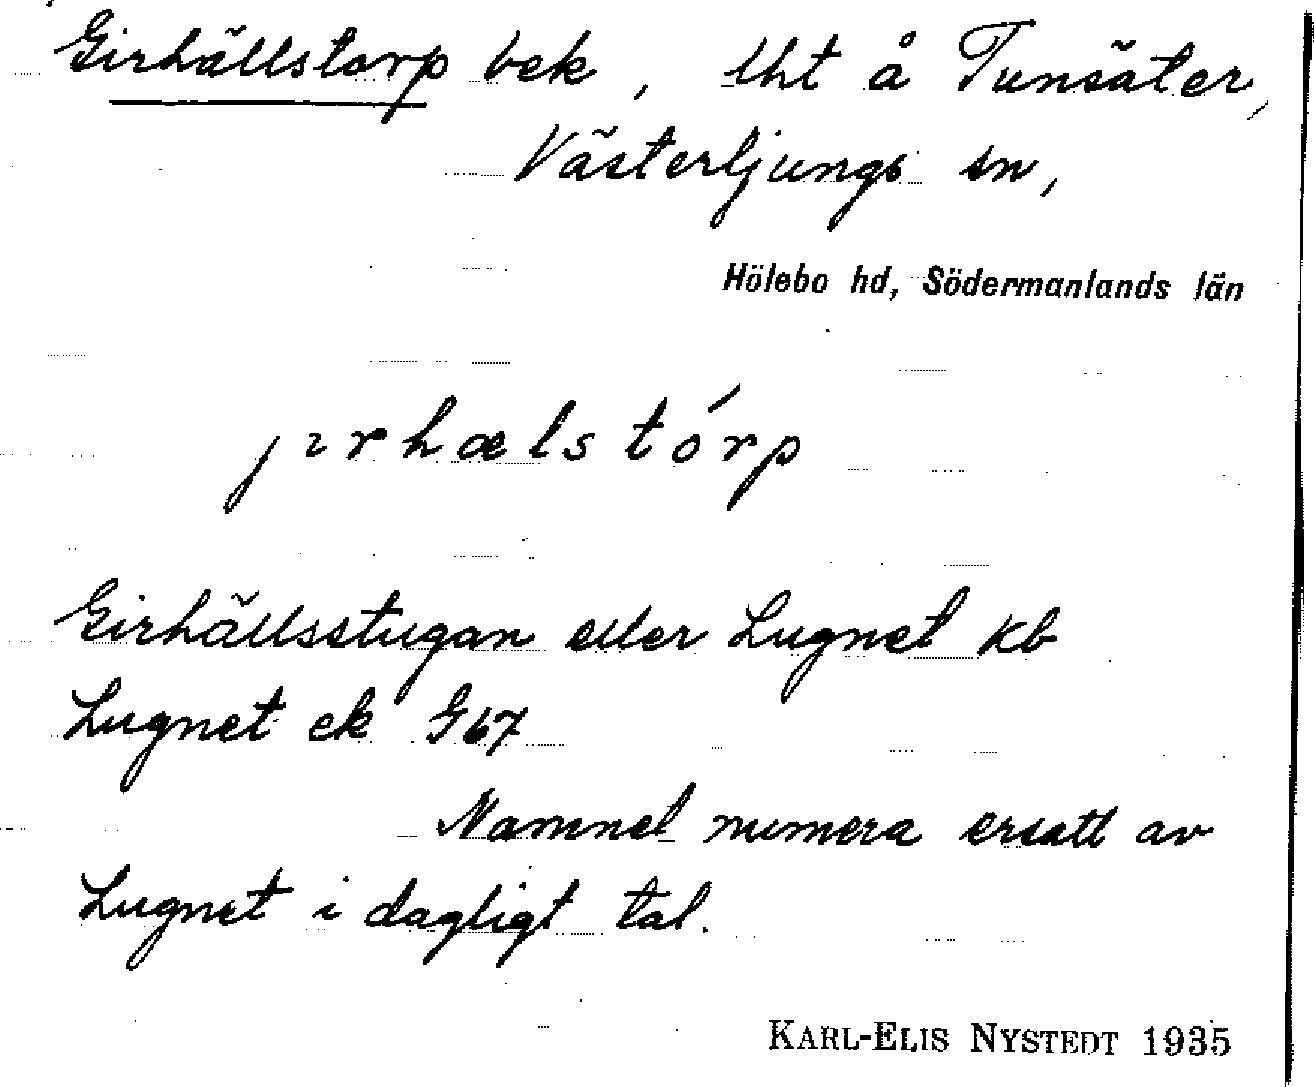 Girhällstorp bek, lht å Tunsäter,
Västerljungs sn,
Hölebo hd, Södermanlands län
jırhælstórp
Girhällsstugan eller Lugnet kb
Lugnet ek G67
Namnet numera ersatt av
Lugnet i dagligt tal.
KARL-ELIS NYSTEDT 1935